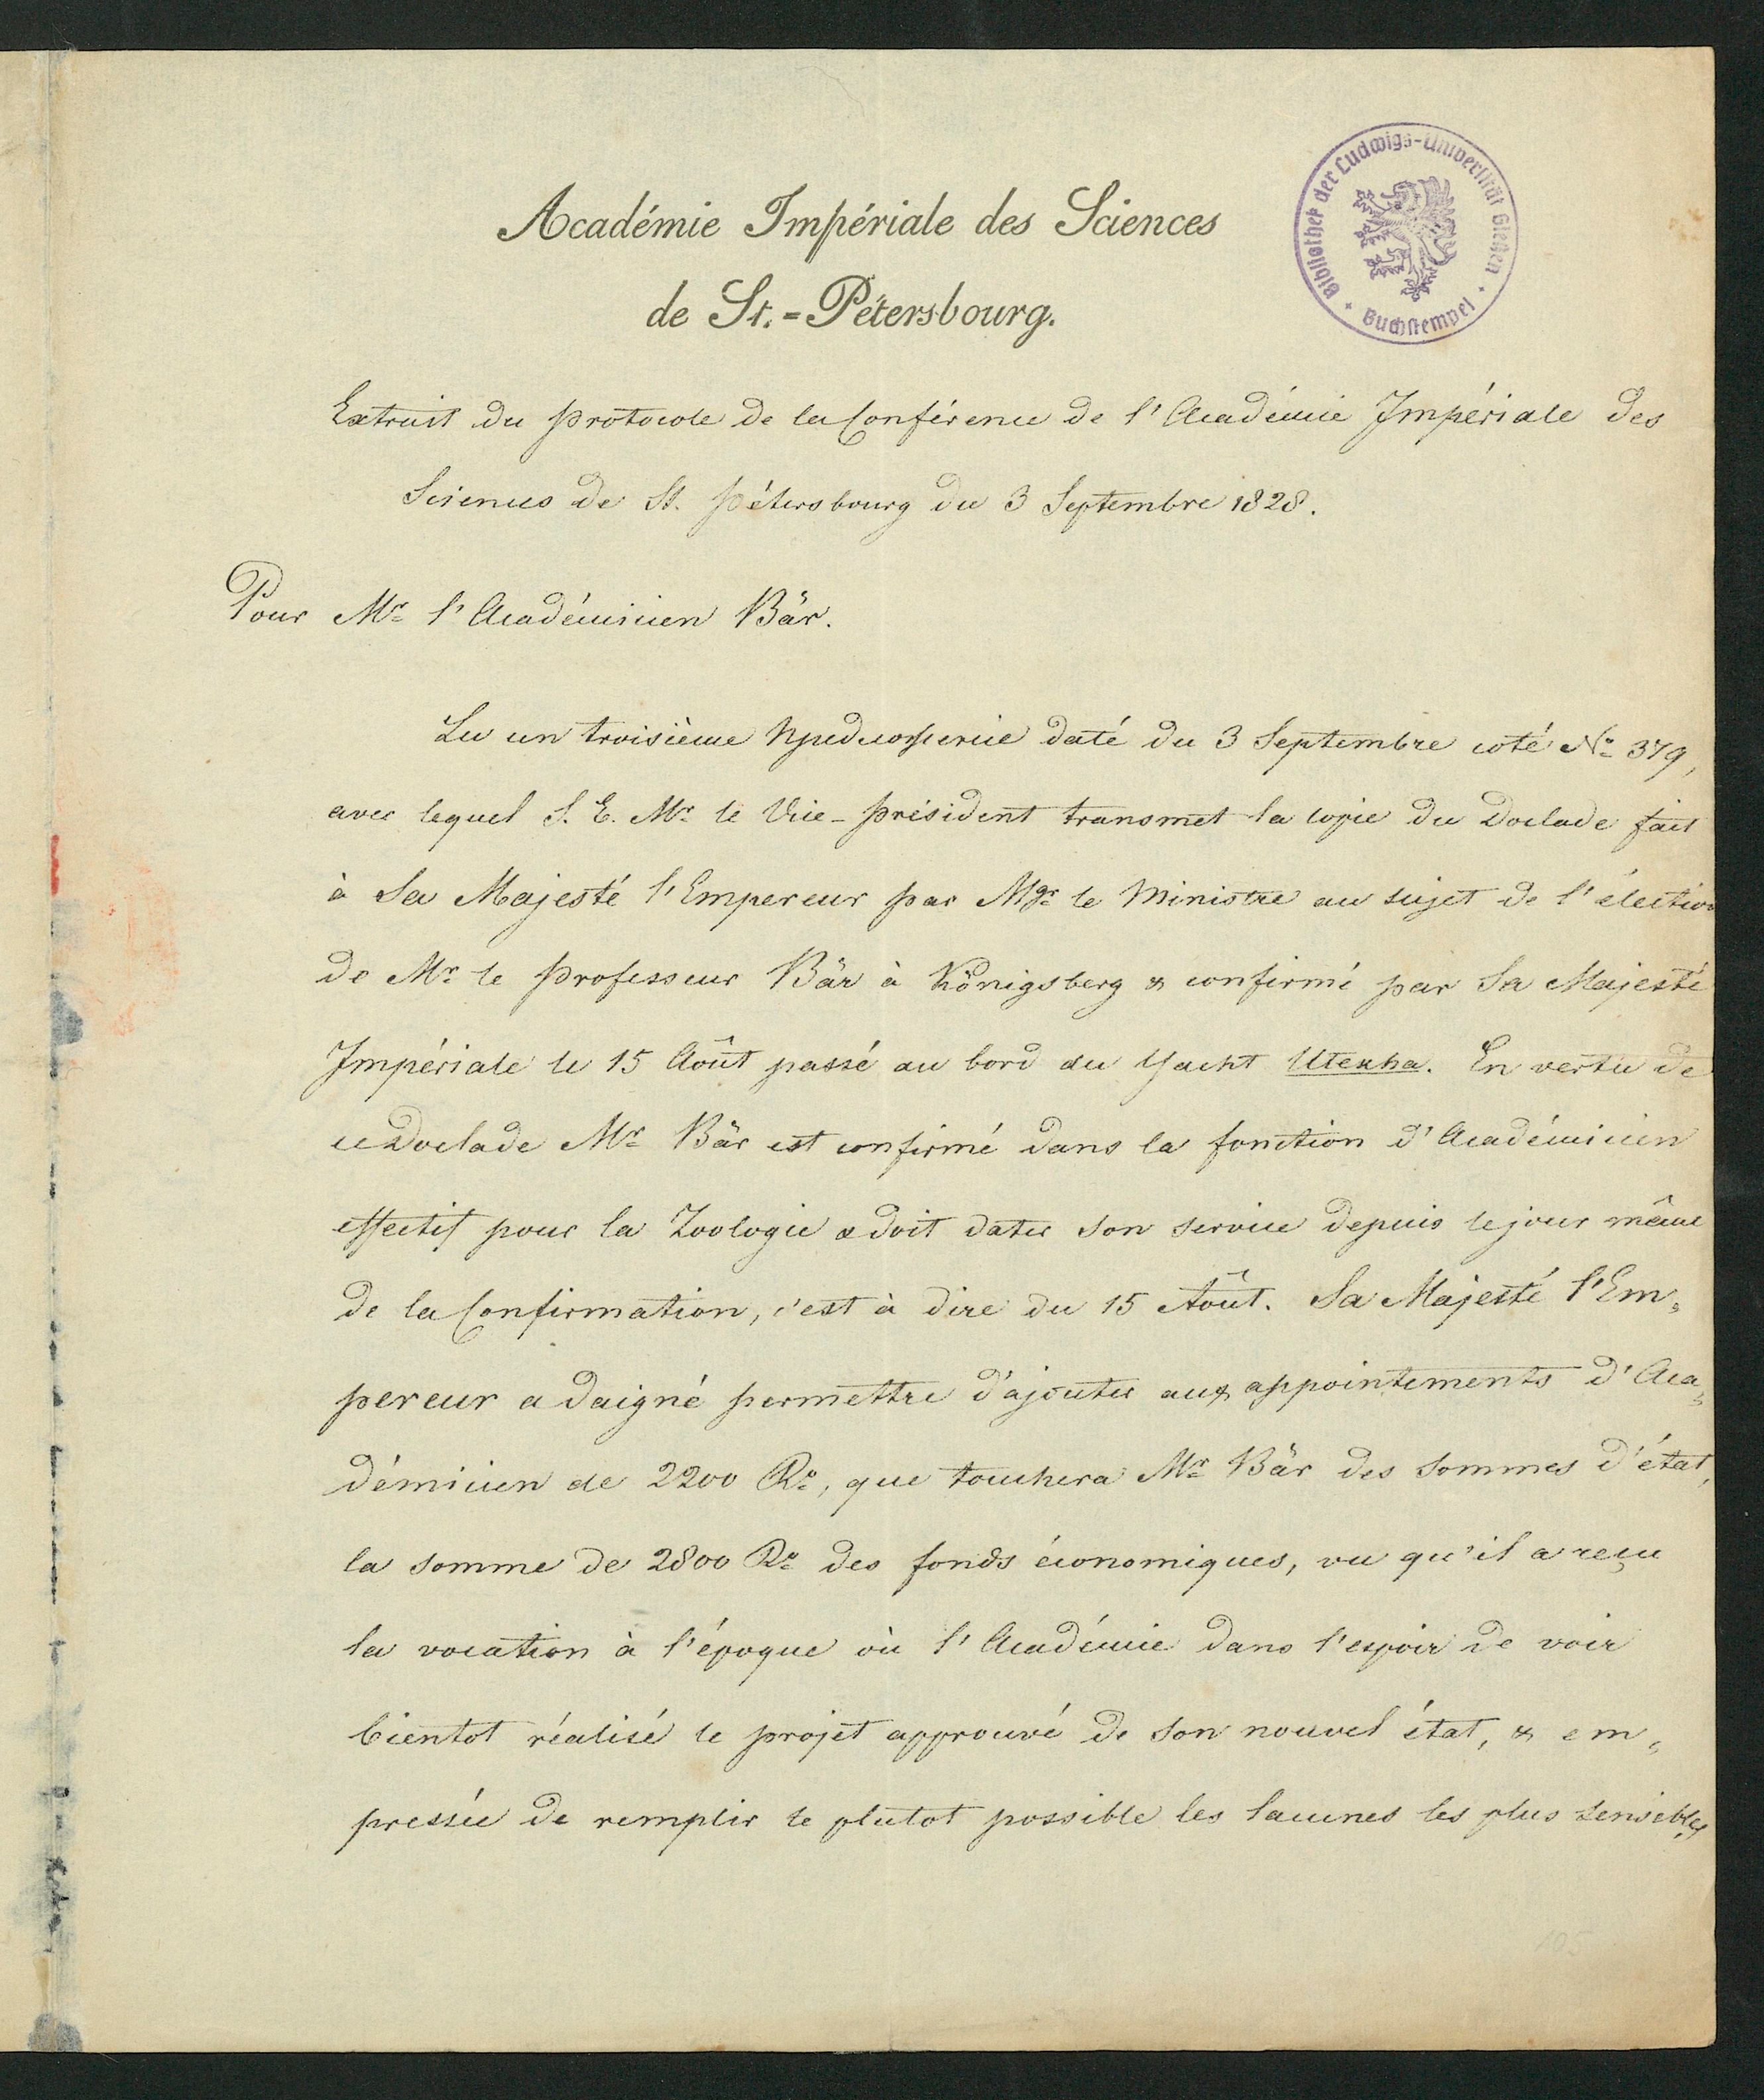 Académie Impériale des Sciences
de St.-Pétersbourg.
Bibliothek der Ludwigs-Universität Gießen
Buchstempel
Extrait du Protocole de la Conférence de l'Académie Impériale des
Sciences de St. Pétersbourg du 3 Septembre 1828.
Pour Mr l'Académicien Bär.
Lu un troisième daté du 3 Septembre coté No 379,
avec lequel S. E. Mr le Vice-Président transmet la copie du Doclade fait
à Sa Majesté l'Empereur par Mgr le Ministre au sujet de l'élection
de Mr le Professeur Bär à Königsberg & confirmé par Sa Majesté
Impériale le 15 Août passé au bord du Yacht. En vertu de
ce Doclade Mr Bär est confirmé dans la fonction d'Académicien
effectif pour la Zoologie & doit dater son service depuis le jour même
de la Confirmation, c'est à dire du 15 Août. Sa Majesté l'Em-
pereur a daigné permettre d'ajouter aux appointements d'Aca-
démicien de 2200 Ro, que touchera Mr Bär des sommes d'état,
la somme de 2800 Ro des fonds économiques, vu qu'il a reçu
la vocation à l'époque où l'Académie dans l'espoir de voir
bientot réalisé le projet approuvé de son nouvel état, & em-
pressée de remplir le plutot possible les lacunes les plus sensibles